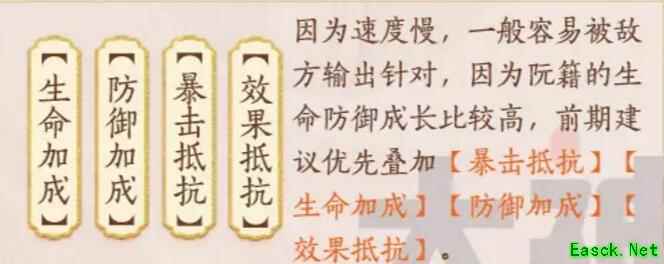 【生命加成】
【防御加成】
【暴击抵抗】
【效果抵抗】
因为速度慢，一般容易被敌
方输出针对，因为阮籍的生
命防御成长比较高，前期建
议优先叠加【暴击抵抗】【
生命加成】【防御加成】【
效果抵抗】。
Easck.Net